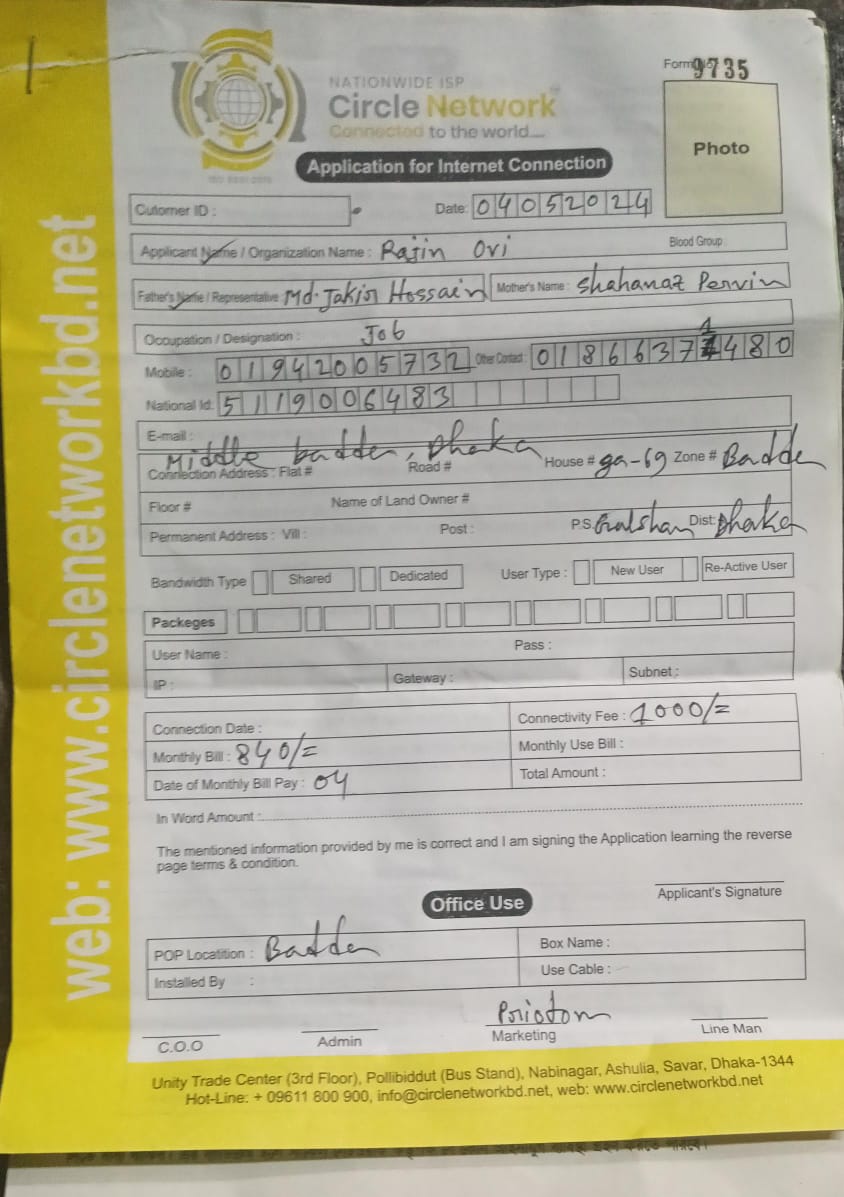 Form No 9735
NATIONWIDE ISP
Circle Network
Connected to the world....
Application for Internet Connection
Photo
Cutomer ID :
Date: 04052024
Applicant Name / Organization Name : Rajin Ori
Blood Group
Father's Name / Representative Md. Jakir Hossain Mother's Name : Shahanaz Pervin
Occupation / Designation : Job
Mobile : 01942005732 Other Contact : 01866371480
National Id: 5119006483
E-mail :
Middle badda, Dhaka
Connection Address : Flat # Road # House # ga-69 Zone # Badda
Floor # Name of Land Owner #
Permanent Address : Vill : Post : P.S. Gulshan Dist: Dhaka
Bandwidth Type Shared Dedicated User Type : New User Re-Active User
Packeges
User Name : Pass :
IP : Gateway : Subnet :
Connection Date : Connectivity Fee : 1000/=
Monthly Bill : 840/= Monthly Use Bill :
Date of Monthly Bill Pay : 04 Total Amount :
In Word Amount :
The mentioned information provided by me is correct and I am signing the Application learning the reverse
page terms & condition.
Applicant's Signature
Office Use
POP Locatition : Badda Box Name :
Installed By : Use Cable :
Priotom
C.O.O Admin Marketing Line Man
Unity Trade Center (3rd Floor), Pollibiddut (Bus Stand), Nabinagar, Ashulia, Savar, Dhaka-1344
Hot-Line: + 09611 800 900, info@circlenetworkbd.net, web: www.circlenetworkbd.net
web: www.circlenetworkbd.net